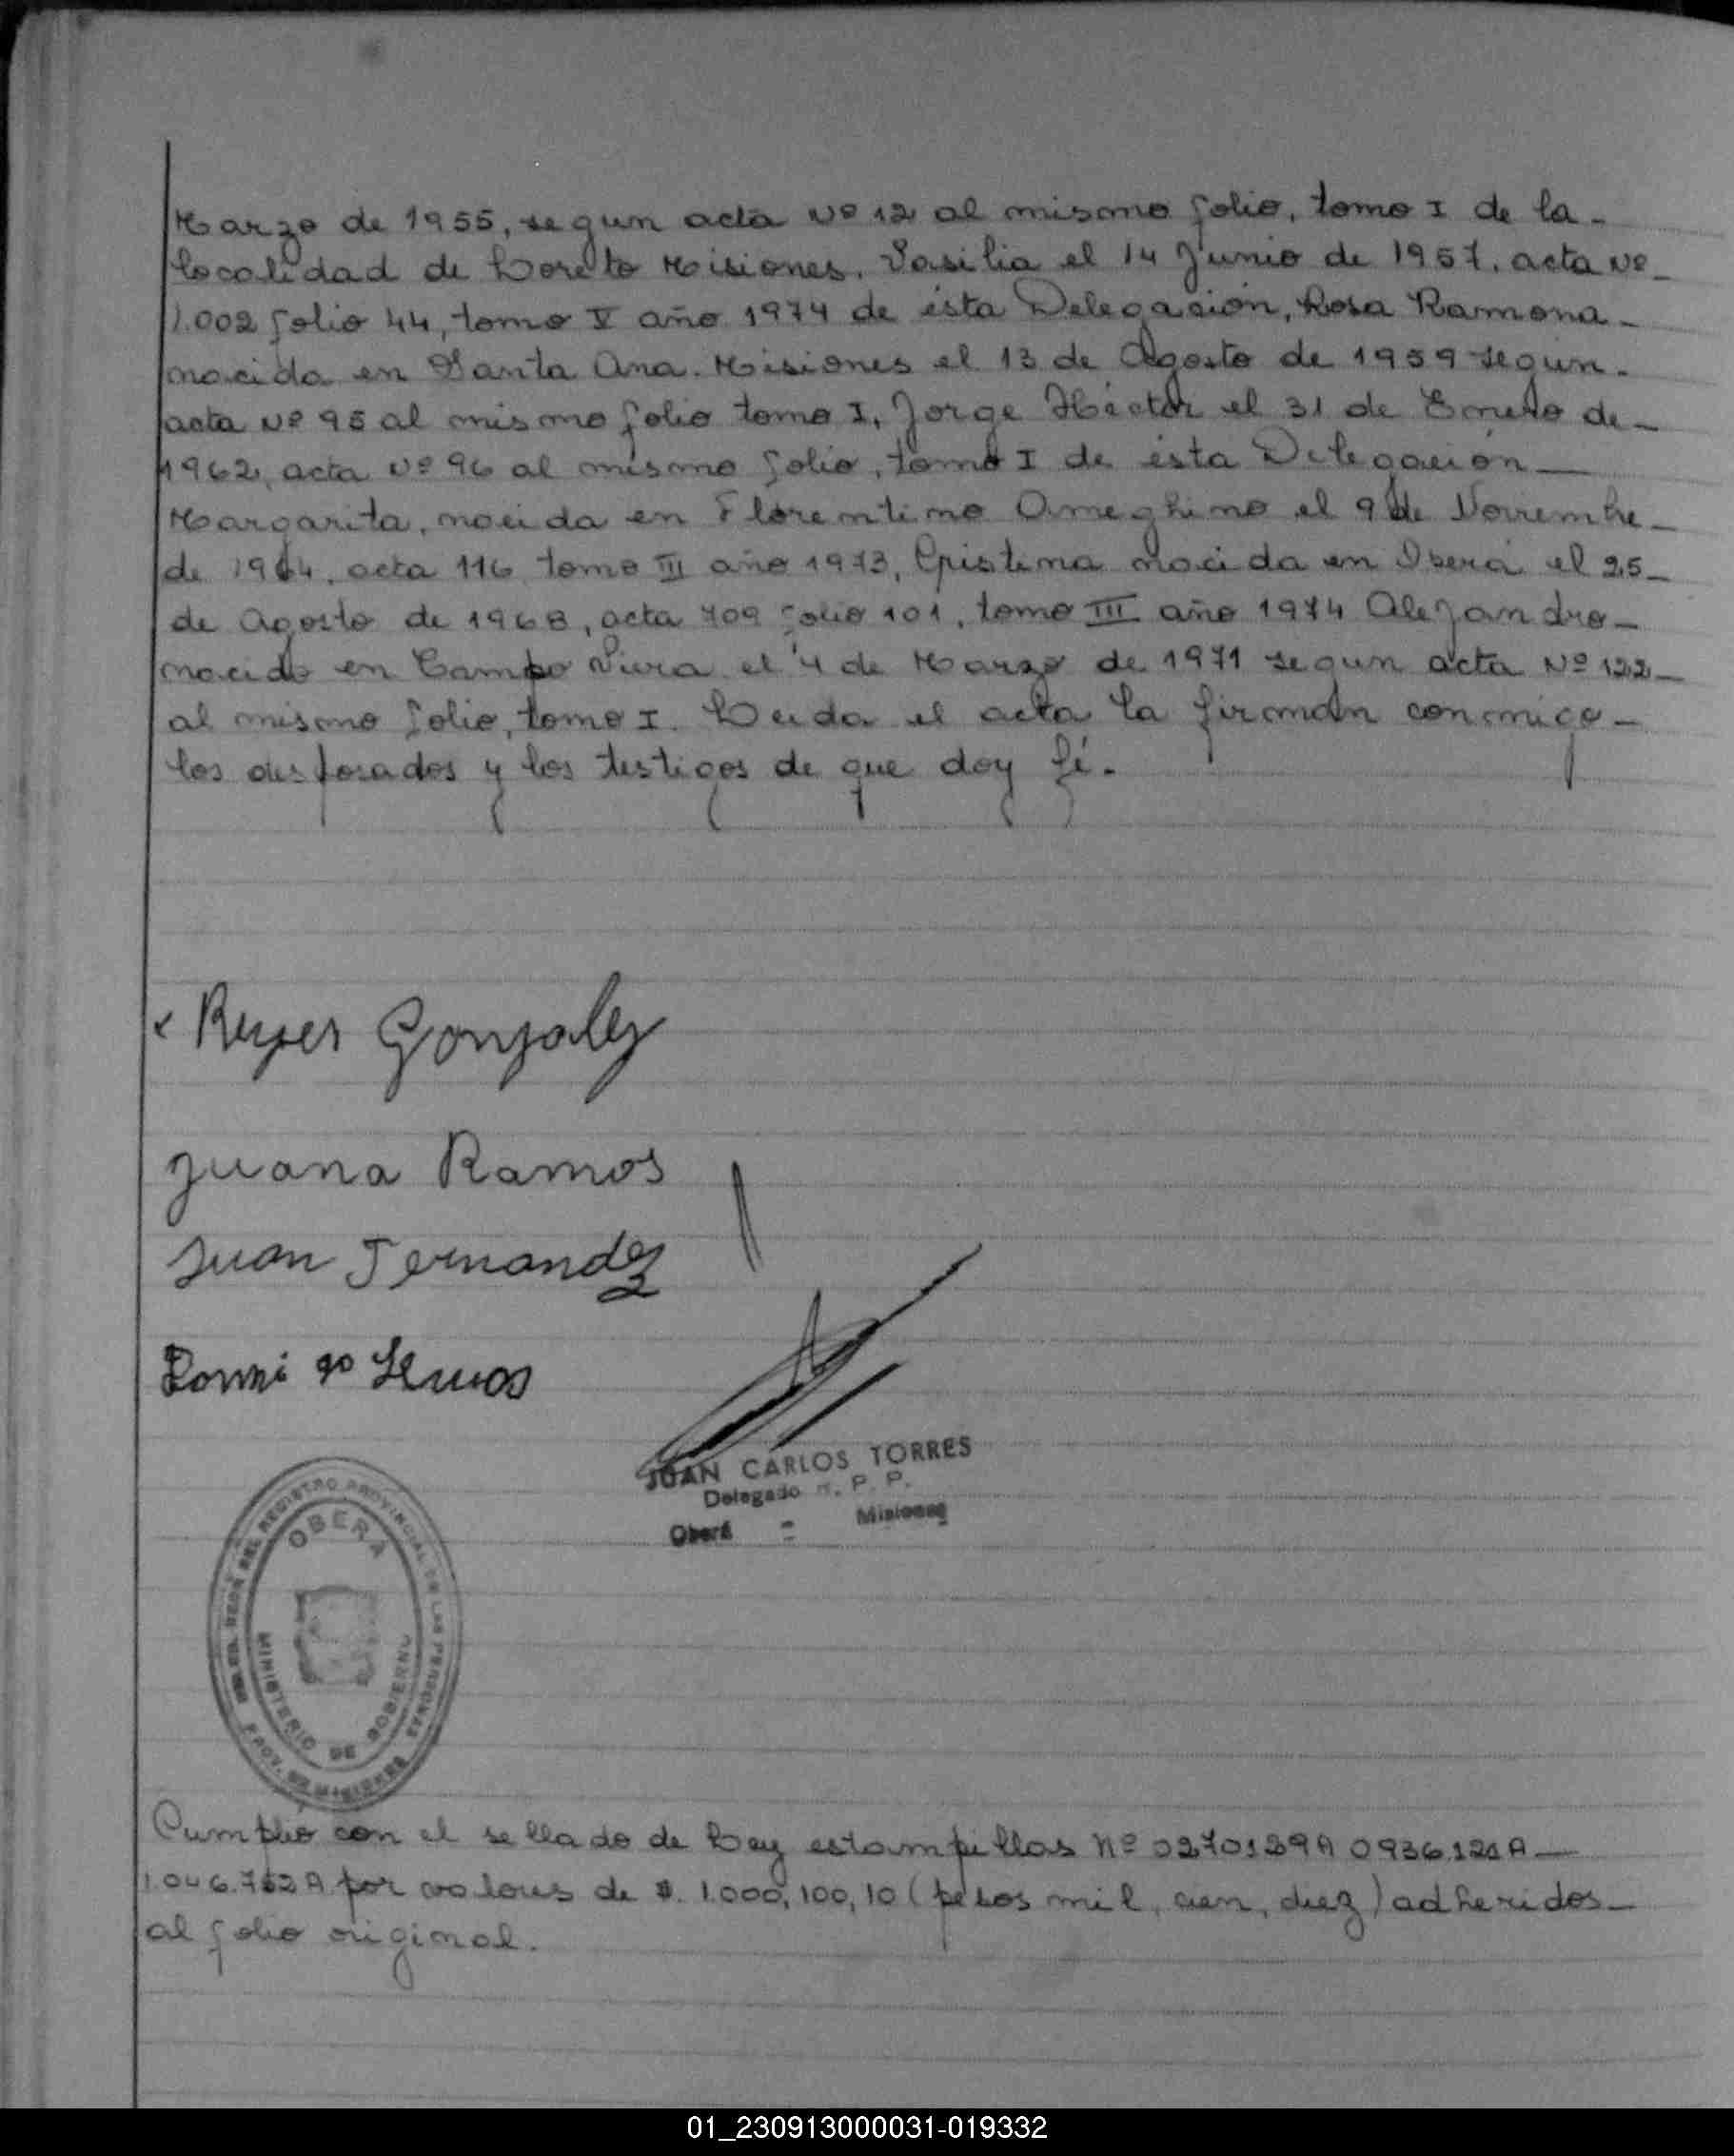 Marzo de 1955, segun acta Nº 12 al mismo folio, tomo I de la-
localidad de Loreto Misiones. Vasilia el 14 Junio de 1957. acta Nº-
1.002 folio 44, tomo V año 1974 de ésta Delegación, Rosa Ramona-
nacida en Santa Ana. Misiones el 13 de Agosto de 1959 segun.
acta Nº 95 al mismo folio tomo I, Jorge Héctor el 31 de Enero de-
1962, acta Nº 96 al mismo folio, tomo I de ésta Delegación-
Margarita, nacida en Florentino Ameghino el 9 de Noviembre-
de 1964, acta 116 tomo III año 1973, Cristina nacida en Oberá el 25-
de Agosto de 1968, acta 709 folio 101, tomo III año 1974 Alejandro-
nacido en Campo Viera el 4 de Marzo de 1971 segun acta Nº 122-
al mismo folio, tomo I. Leida el acta la firman conmigo-
los desposados y los testigos de que doy fé.
Reyes Gonzalez
Juana Ramos
Juan Fernandez
JUAN CARLOS TORRES
Delegado R. P. P.
Oberá - Misiones
REGISTRO PROVINCIAL DE LAS PERSONAS
OBERA
MINISTERIO DE GOBIERNO
PROV. DE MISIONES
Cumplió con el sellado de Ley estampillas Nº 0270139A 0936.121A-
1.046.762A por valores de $. 1.000, 100, 10 (pesos mil, cien, diez) adheridos-
al folio original.
01_230913000031-019332